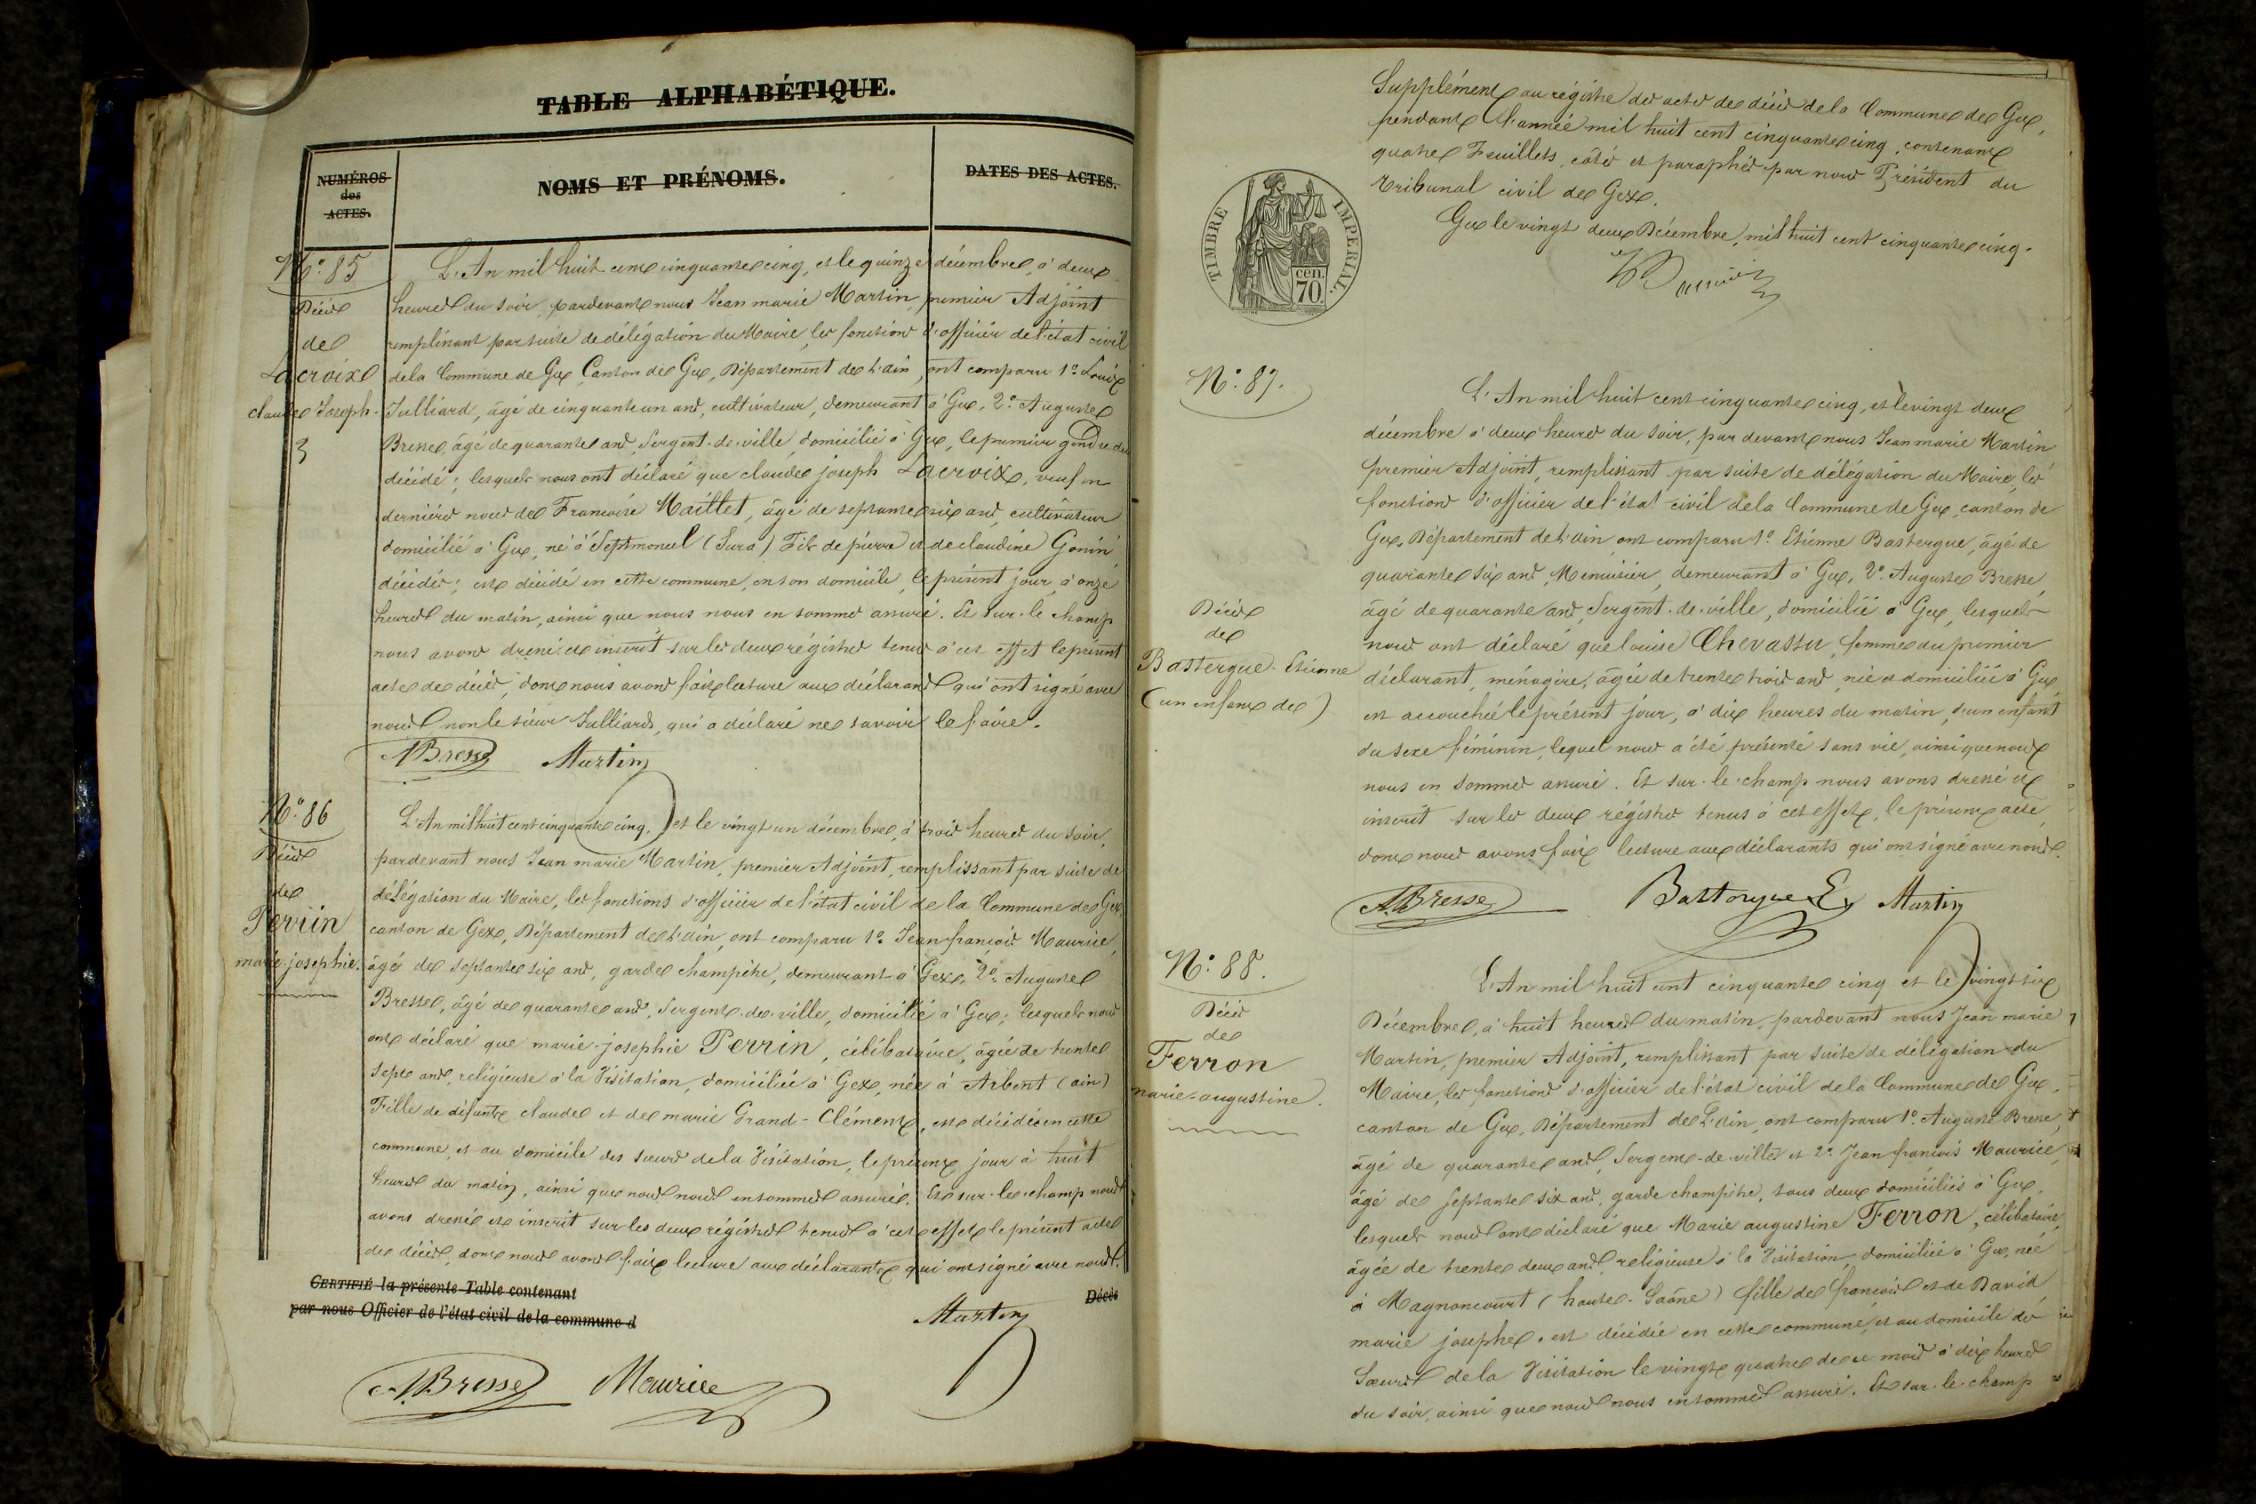 TABLE ALPHABÉTIQUE.
NUMÉROS
des
ACTES.
NOMS ET PRÉNOMS.
DATES DES ACTES.
N.° 85
Décès
de
Lacroix
claude Joseph.
3
L'An mil huit cent cinquante cinq, et le quinze décembre, à deux
heures du soir, pardevant nous Jean marie Martin, premier Adjoint
remplissant par suite de délégation du Maire, les fonctions d'officier de l'état civil
de la Commune de Gex Canton de Gex, Département de l'ain, ont comparu 1.° Louis
Julliard, âgé de cinquante un ans, cultivateur, demeurant à Gex, 2.° Auguste
Bresse, âgé de quarante ans, Sergent-de-ville, domicilié à Gex, le premier gendre du
décédé; lesquels nous ont déclaré que claude joseph Lacroix, veuf en
dernières noces de Francoise Maillet, âgé de septante six ans, cultivateur
domicilié à Gex, né à Septmoncel (Jura) Fils de pierre et de claudine Gonin
décédés; est décédé en cette commune, en son domicile, le présent jour, à onze
heures du matin, ainsi que nous nous en sommes assuré. Et sur-le-champ
nous avons dressé et inscrit sur les deux régistres tenus à cet effet le présent
acte de décès, dont nous avons fait lecture aux déclarans qui ont signé avec
nous, non le sieur Julliard, qui a déclaré ne savoir le faire.
ABresse Martin
N.° 86
Décès
de
Perrin
marie-josephie.
L'An mil huit cent cinquante cinq, et le vingt un décembre, à trois heures du soir,
pardevant nous Jean marie Martin, premier Adjoint, remplissant par suite de
délégation du Maire, les fonctions d'officier de l'état civil de la Commune de Gex,
canton de Gex, Département de l'ain, ont comparu 1.° Jean françois Maurice,
âgé de septante six ans, garde champêtre, demeurant à Gex, 2.° Auguste
Bresse, âgé de quarante ans, Sergent-de-ville, domicilié à Gex; lesquels nous
ont déclaré que marie-josephie Perrin, célibataire, âgée de trente
sept ans, religieuse à la Visitation, domiciliée à Gex, née à Arbent (ain)
Fille de défunts claude et de marie Grand-Clément, est décédée en cette
commune, et au domicile des sœurs de la Visitation, le présent jour à huit
heures du matin, ainsi que nous nous en sommes assuré. Et sur-le-champ nous
avons dressé et inscrit sur les deux régistres tenus à cet effet le présent acte
de décès, dont nous avons fait lecture aux déclarants qui ont signé avec nous.
CERTIFIÉ la présente Table contenant
Décès
par nous Officier de l'état civil de la commune d
Martin
ABresse Maurice
Supplément au régistre des actes de décès de la Commune de Gex,
pendant l'année mil huit cent cinquante cinq, contenant
quatre Feuillets, côtés et paraphés par nous Président du
Tribunal civil de Gex.
Gex le vingt deux Décembre, mil huit cent cinquante cinq.
TIMBRE IMPÉRIAL.
cen.
70
N.° 87.
Décès
de
Bastergue-Etienne
(un enfant de)
L'An mil huit cent cinquante cinq, et le vingt deux
décembre à deux heures du soir, par devant nous Jean marie Martin
premier Adjoint, remplissant par suite de délégation du Maire, les
fonctions d'officier de l'état-civil de la Commune de Gex, canton de
Gex, Département de l'ain, ont comparu 1.° Etienne Bastergue, âgé de
quarante six ans, Menuisier, demeurant à Gex, 2.° Auguste Bresse
âgé de quarante ans, Sergent-de-ville, domicilié à Gex, lesquels
nous ont déclaré que louise Chevassu, femme du premier
déclarant, ménagère, âgée de trente trois ans, née et domiciliée à Gex,
est accouchée le présent jour, à dix heures du matin, d'un enfant
du sexe féminin, lequel nous a été présenté sans vie, ainsi que nous
nous en sommes assuré. Et sur-le-champ nous avons dressé et
inscrit sur les deux régistres tenus à cet effet, le présent acte,
dont nous avons fait lecture aux déclarants qui ont signé avec nous.
A.Bresse Bastergue E. Martin
N.° 88.
Décès
de
Ferron
marie-augustine.
L'An mil huit cent cinquante cinq et le vingt-six
Décembre, à huit heures du matin, pardevant nous Jean marie
Martin, premier Adjoint, remplissant par suite de délégation du
Maire, les fonctions d'officier de l'état civil de la Commune de Gex,
canton de Gex, Département de l'ain, ont comparu 1.° Auguste Bresse,
âgé de quarante ans, Sergent-de-ville et 2.° Jean francois Maurice,
âgé de septante six ans, garde champêtre, tous deux domiciliés à Gex,
lesquels nous ont déclaré que Marie augustine Ferron, célibataire,
âgée de trente deux ans, religieuse à la Visitation, domiciliée à Gex, née
à Magnoncourt (haute-Saône) fille de francois et de David
marie josephe, est décédée en cette commune, et au domicile des
Sœurs de la Visitation le vingt quatre de ce mois à dix heures
du soir, ainsi que nous nous en sommes assuré. Et sur-le-champ